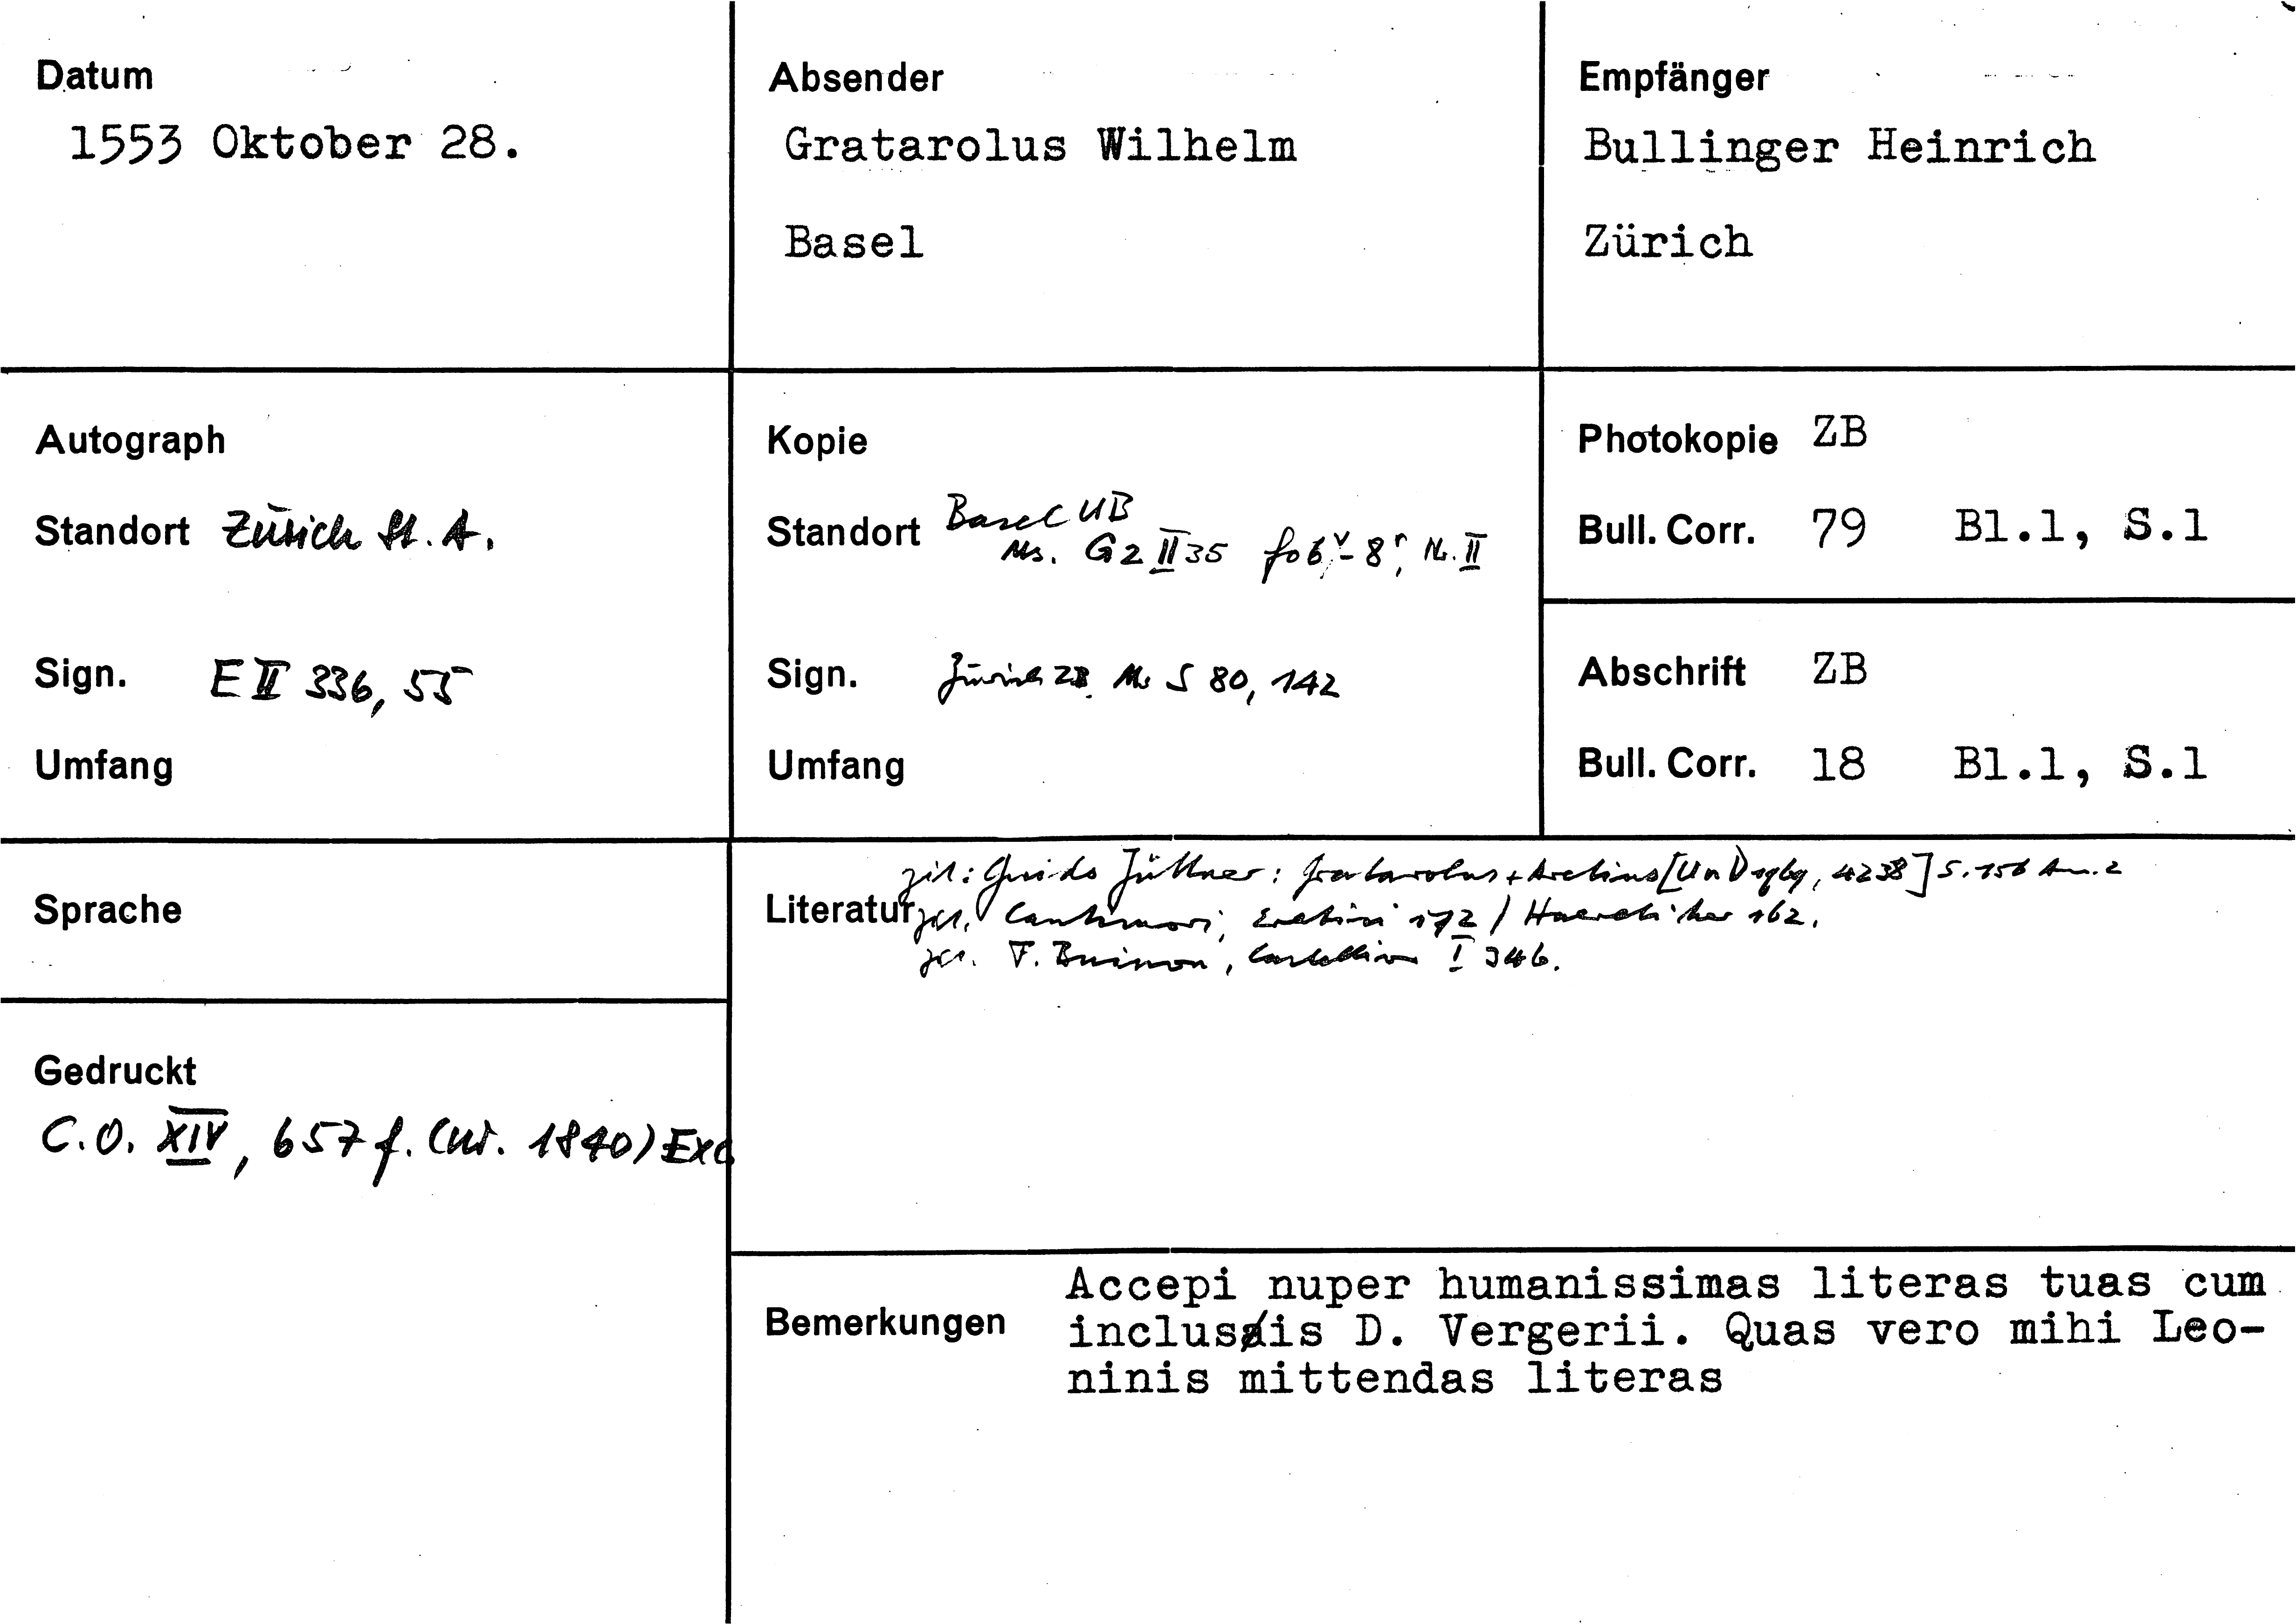 Datum
1553 Oktober 28.
Absender
Gratarolus Wilhelm
Basel
Empfänger
Bullinger Heinrich
Zürich
Autograph
Standort Zürich St. A.
Sign. E II 336, 55
Umfang
Kopie
Standort Basel UB
Ms. G2 II 35 fo 6v-8r, Nr. II
Sign. Zürich ZB Ms S 80, 142
Umfang
Photokopie ZB
Bull. Corr. 79 Bl.1, S.1
Abschrift ZB
Bull. Corr. 18 Bl.1, S.1
Sprache
Gedruckt
C.O. XIV, 657 f. (Nr. 1840) Exc
zit: Guido Jüttner: Gratarolus + Aretius S. 156 Anm. 2
Literatur zit. Cantimori, Eretici 172 / Haeretiker 162.
zit. F. Buisson, Castellion I 346.
Bemerkungen
Accepi nuper humanissimas literas tuas cum
inclusis D. Vergerii. Quas vero mihi Leo-
ninis mittendas literas